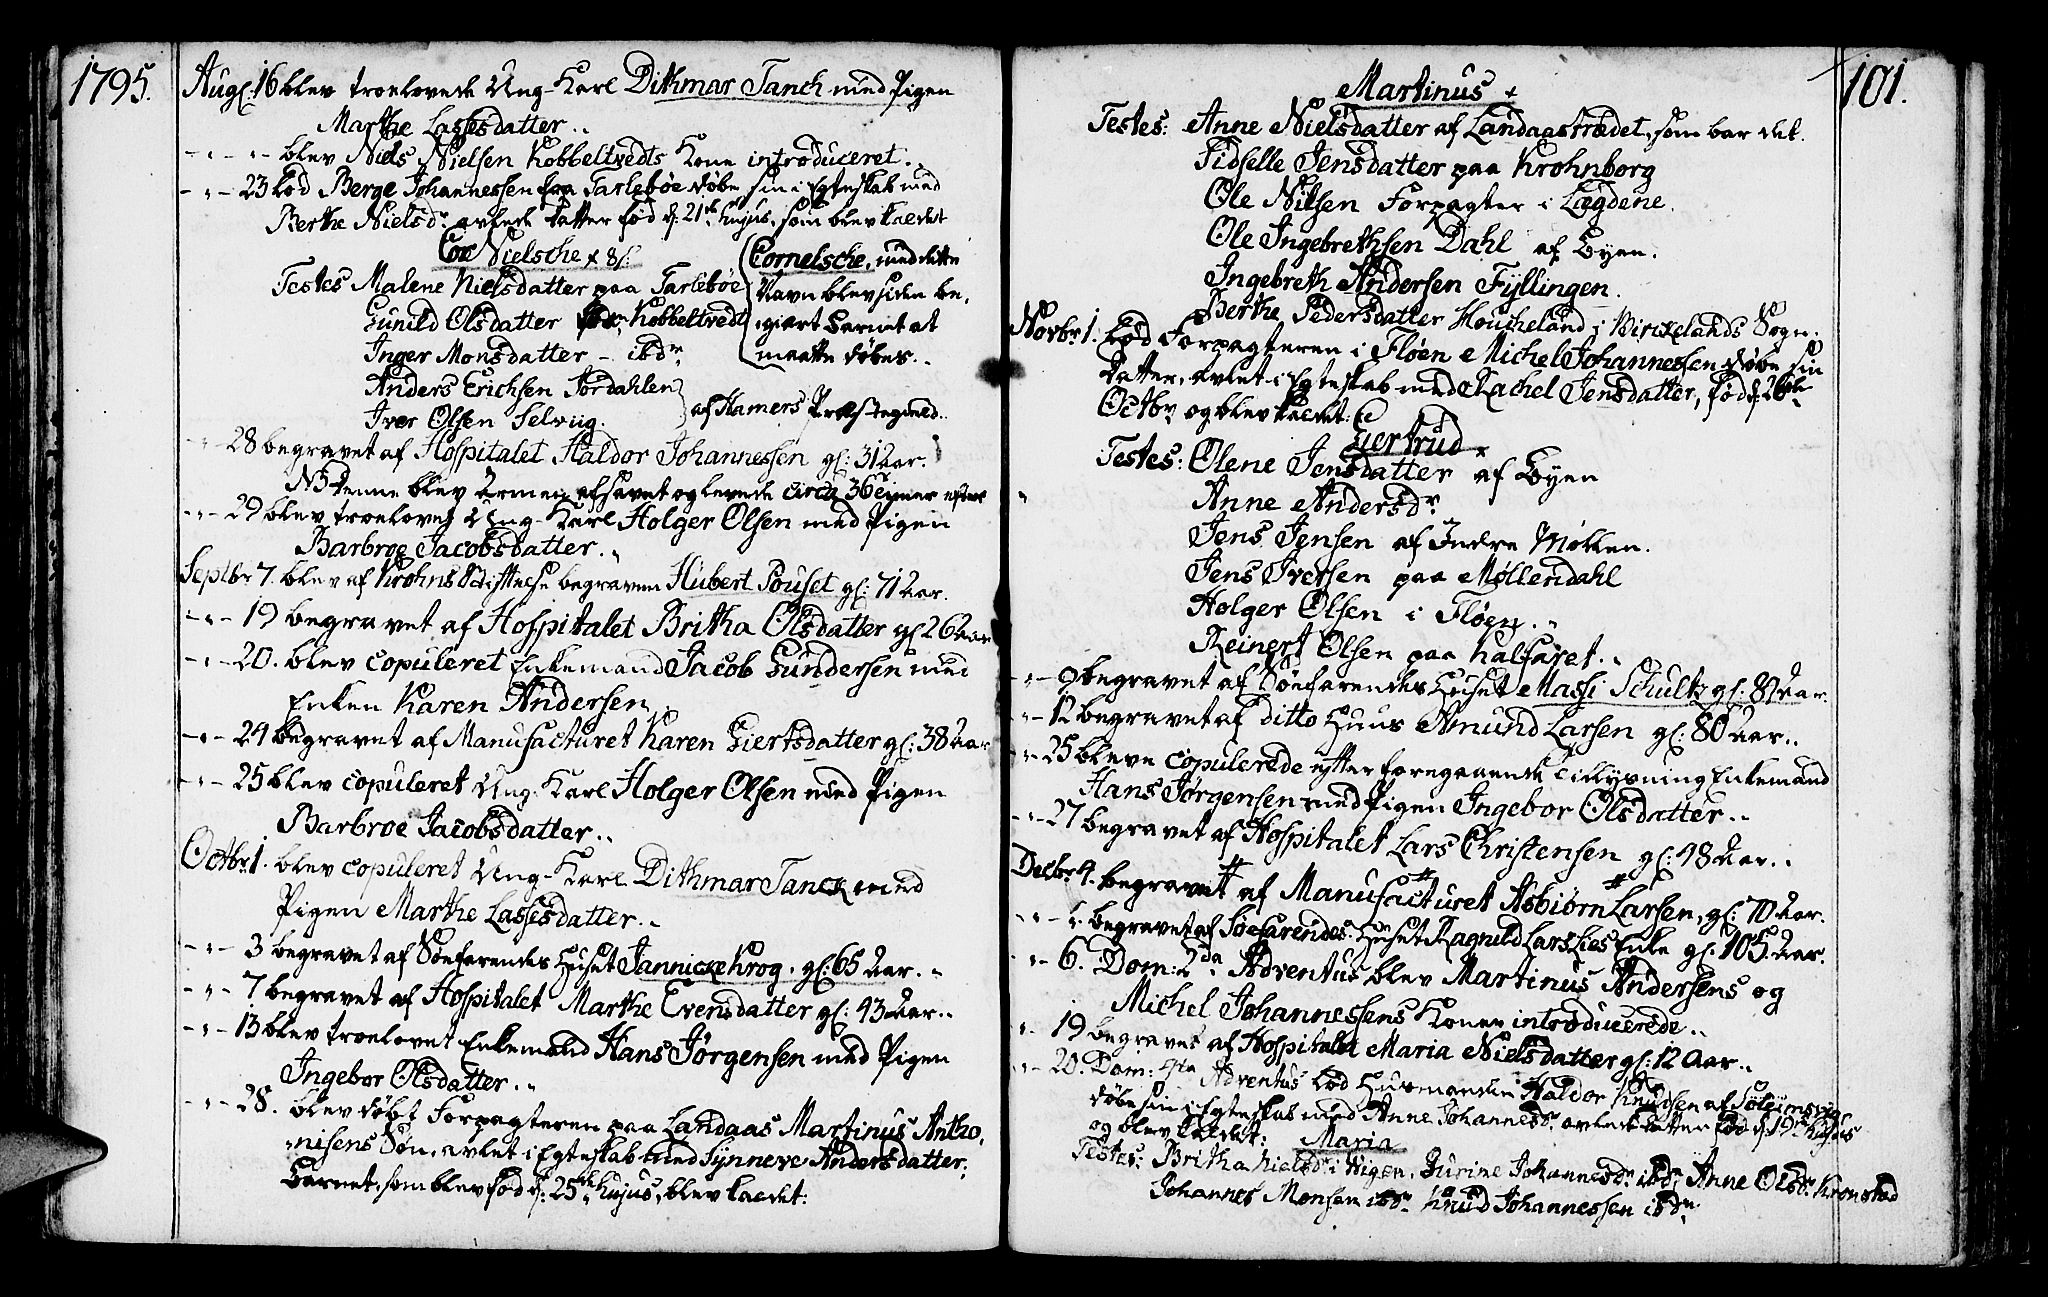 1795.
Augl: 16 blev troelovede Ung-Karl Dithmar Tanck med Pigen
Marthe Lassesdatter..
- " - " - blev Niels Nielsen Kobbeltvedts Kone introduceret..
- " - 23 Lod Berge Johannessen paa Tarlebøe døbe sin i Egteskab med
Berthe Nielsdr. avlede datter fød d: 21de hujus, som blev kaldet
Cor Nielsche + 8/:
Testes Malene Nielsdatter paa Tarlebøe
Gunild Olsdatter Kobbeltvedt
Inger Monsdatter - ibdm
Anders Erichsen Jordahlen
Iver Olsen Selviig.
af Hamers Præstegield..
Cornelsche, med dette
Navn blev siden be,
giært Barnet at
maatte døbes..
" - 28 begravet af Hospitalet Haldor Johannessen gl: 31 Aar.
NB denne blev Armen afsavet og levede circa 36 timer efter
- " - 29 blev troelovet Ung-Karl Holger Olsen med Pigen
Barbroe Jacobsdatter..
Septbr 7. blev af Krohns Stiftelse begraven Hubert Pouset gl: 71 Aar.
- " - 19 begravet af Hospitalet Britha Olsdatter gl 26 Aar
- " - 20. blev copuleret Enkemand Jacob Gundersen med
Enken Karen Andersen
- " - 24 begravet af Manufacturet Karen Giertsdatter gl: 38 Aar
- " - 25 blev copuleret Ung-Karl Holger Olsen med Pigen
Barbroe Jacobsdatter..
Octbr 1. blev copuleret Ung-Karl Dithmar Tanck med
Pigen Marthe Lassesdatter..
- " - 3 begravet af Søefarendes Huset Jannicke Krog. gl: 65 Aar..
- " - 7 begravet af Hospitalet Marthe Evensdatter gl: 43 Aar..
- " - 13 blev troelovet Enkemand Hans Jørgensen med Pigen
Ingebor Olsdatter..
- " - 28. blev døbt Forpagteren paa Landaas Martinus Antho,
nisens Søn, avlet i Egteskab med Synneve Andersdatter.
Barnet, som blev fød d: 25de hujus, blev kaldet:
101.
Martinus +
Testes: Anne Nielsdatter af Landaastrædet, som bar det.
Sidselle Jensdatter paa Krohnborg
Ole Nilsen Forpagter i Lægdene
Ole Ingebrethsen Dahl af Byen.
Ingebreth Andersen Fyllingen.
Berthe Pedersdatter Houcheland i Birckelands Sogn.
Novbr 1. Lod Forpagteren i Fløen Michel Johannessen døbe sin
datter, avlet i Egteskab med Rachel Jensdatter, fød d: 26de
Octbr og blev kaldet:
Giertrud
Testes: Olene Jensdatter af Byen
Anne Andersdr
Jens Jensen af Indre Møllen.
Jens Iversen paa Møllendahl
Holger Olsen i Fløen..
Reinert Olsen paa Kalfaret..
- " - 9 begravet af Søefarendes Huset Massi Schultz gl: 89 Aar.
" - 12 begravet af ditto Huus Amund Larsen gl: 80 Aar..
- " - 25 bleve copulerede efter foregaaende Tillysning Enkemand
Hans Jørgensen med Pigen Ingebor Olsdatter..
- " - 27 begravet af Hospitalet Lars Christensen gl: 48 Aar..
Decbr 4. begravet af Manufacturet Asbiørn Larsen, gl: 70 Aar.
- " - begravet af Søefarendes Huset Ragnild Larslies Enke gl: 105 Aar.
- " - 6. Dom: 2da Adventus blev Martinus Andersens og
Michel Johannessens Koner introducerede..
" - 19 begravet af Hospitalet Maria Nielsdatter gl: 12 Aar..
" - 20. Dom: 4ta Adventus Lod Husmanden Haldor Knudsen af Soleimsvig
døbe sin i Egteskab med Anne Johannesdr. avlede datter fød d: 19de hujus
og blev kaldet: Maria
Testes: Britha Nielsdr i Wigen, Gurine Johannesdr ibdm Anne Olsdr. Kronstad
Johannes Monsen ibdm Knud Johannessen ibdm